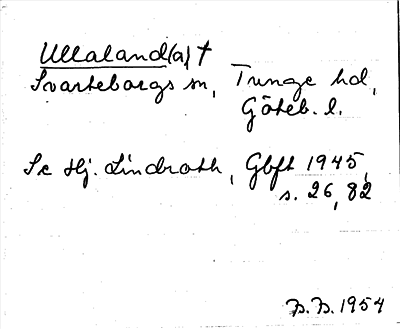 Ullaland(a) †
Svarteborgs sn, Tunge hd,
Göteb. l.
Se Hj. Lindroth, Gbft 1945,
s. 26, 82
B.B. 1954